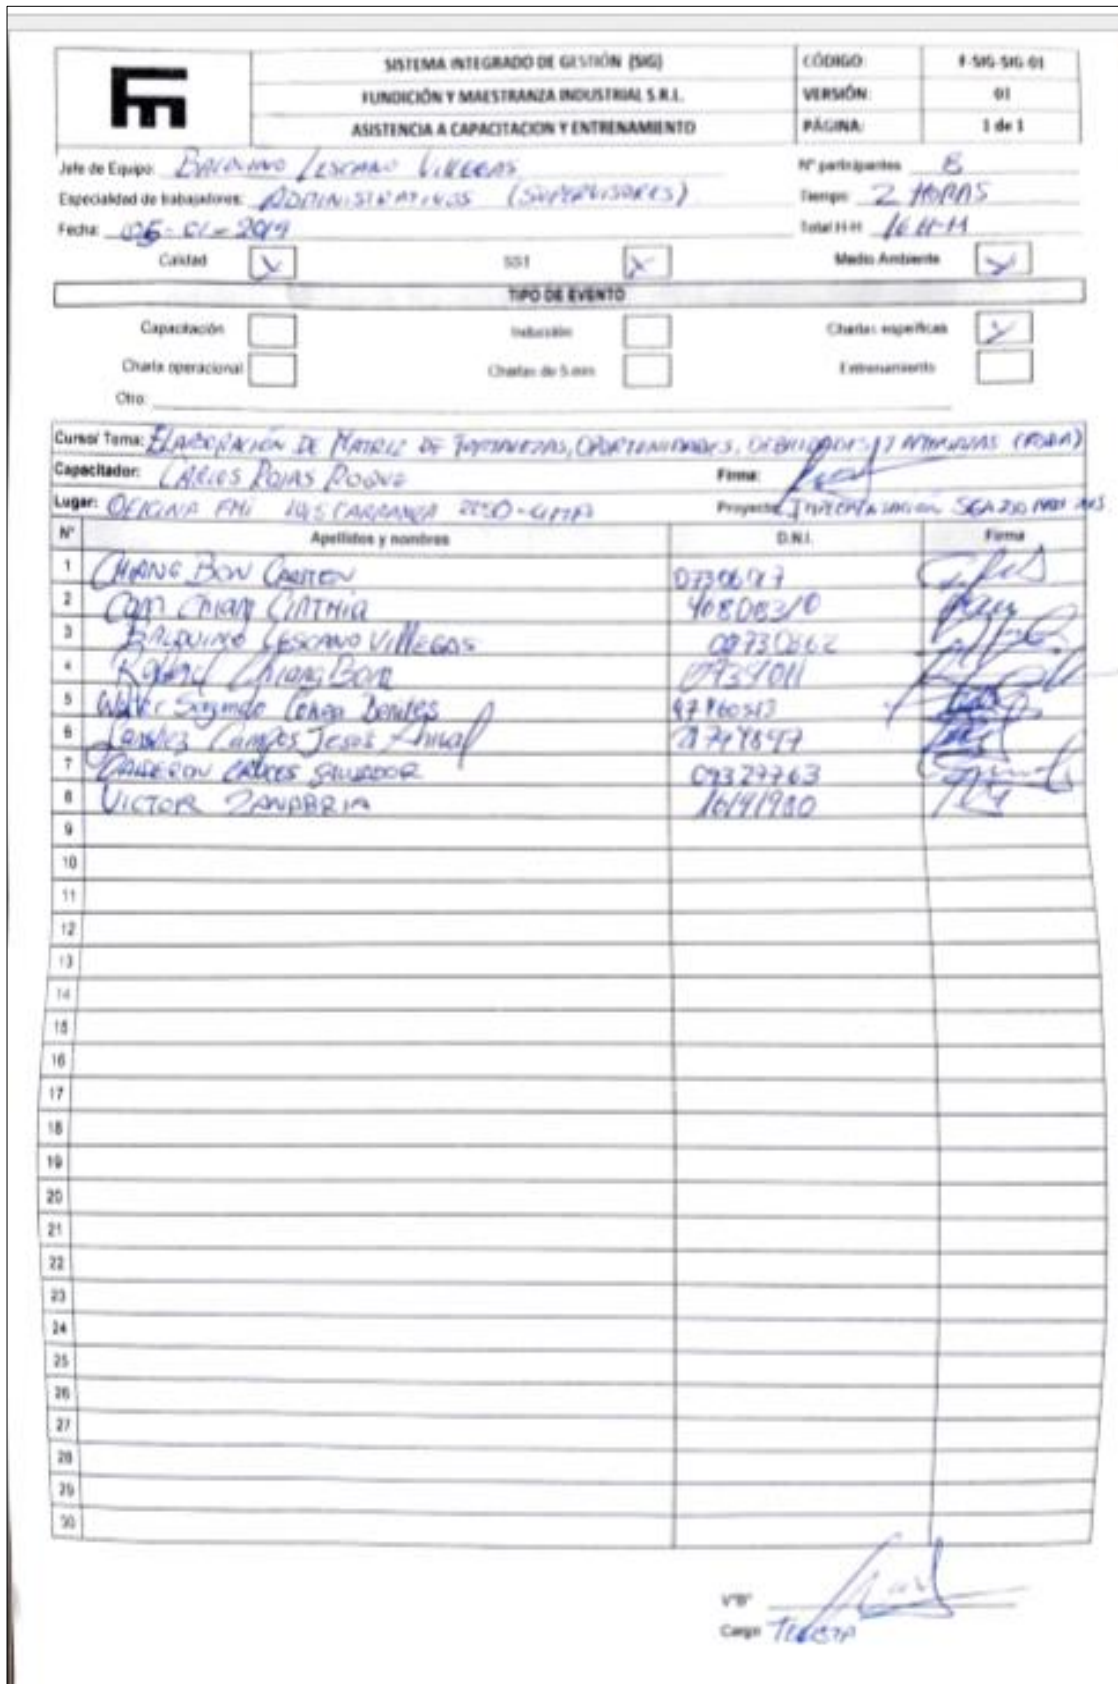 SISTEMA INTEGRADO DE GESTIÓN (SIG)
CÓDIGO: F-SIG-SIG-01
FUNDICIÓN Y MAESTRANZA INDUSTRIAL S.R.L.
VERSIÓN: 01
ASISTENCIA A CAPACITACION Y ENTRENAMIENTO
PÁGINA: 1 de 1
Jefe de Equipo: BALDUINO LESCANO VILLEGAS
Nº participantes 8
Especialidad de trabajadores: ADMINISTRATIVOS (SUPERVISORES)
Tiempo: 2 HORAS
Fecha: 05-01-2019
Total H-H: 16 H-H
Calidad SST Medio Ambiente
TIPO DE EVENTO
Capacitación Inducción Charlas específicas
Charla operacional Charlas de 5 min Entrenamiento
Otro:
Curso/ Tema: ELABORACIÓN DE MATRIZ DE FORTALEZAS, OPORTUNIDADES, DEBILIDADES Y AMENAZAS (FODA)
Capacitador: CARLOS ROJAS ROQUE Firma:
Lugar: OFICINA FMI LUIS CARRANZA
Proyecto: IMPLEMENTACIÓN SGA ISO
Nº Apellidos y nombres D.N.I. Firma
1 CHIANG BON CARMEN
2 CINTHIA 40808310
3 BALDUINO LESCANO VILLEGAS 08730662
4 Chiang Bon
5 Segundo
6 Sanchez Campos Jesus
7 CALDERON SALVADOR 09327763
8 VICTOR ZANABRIA 16141980
9
10
11
12
13
14
15
16
17
18
19
20
21
22
23
24
25
26
27
28
29
30
VºBº
Cargo TESISTA